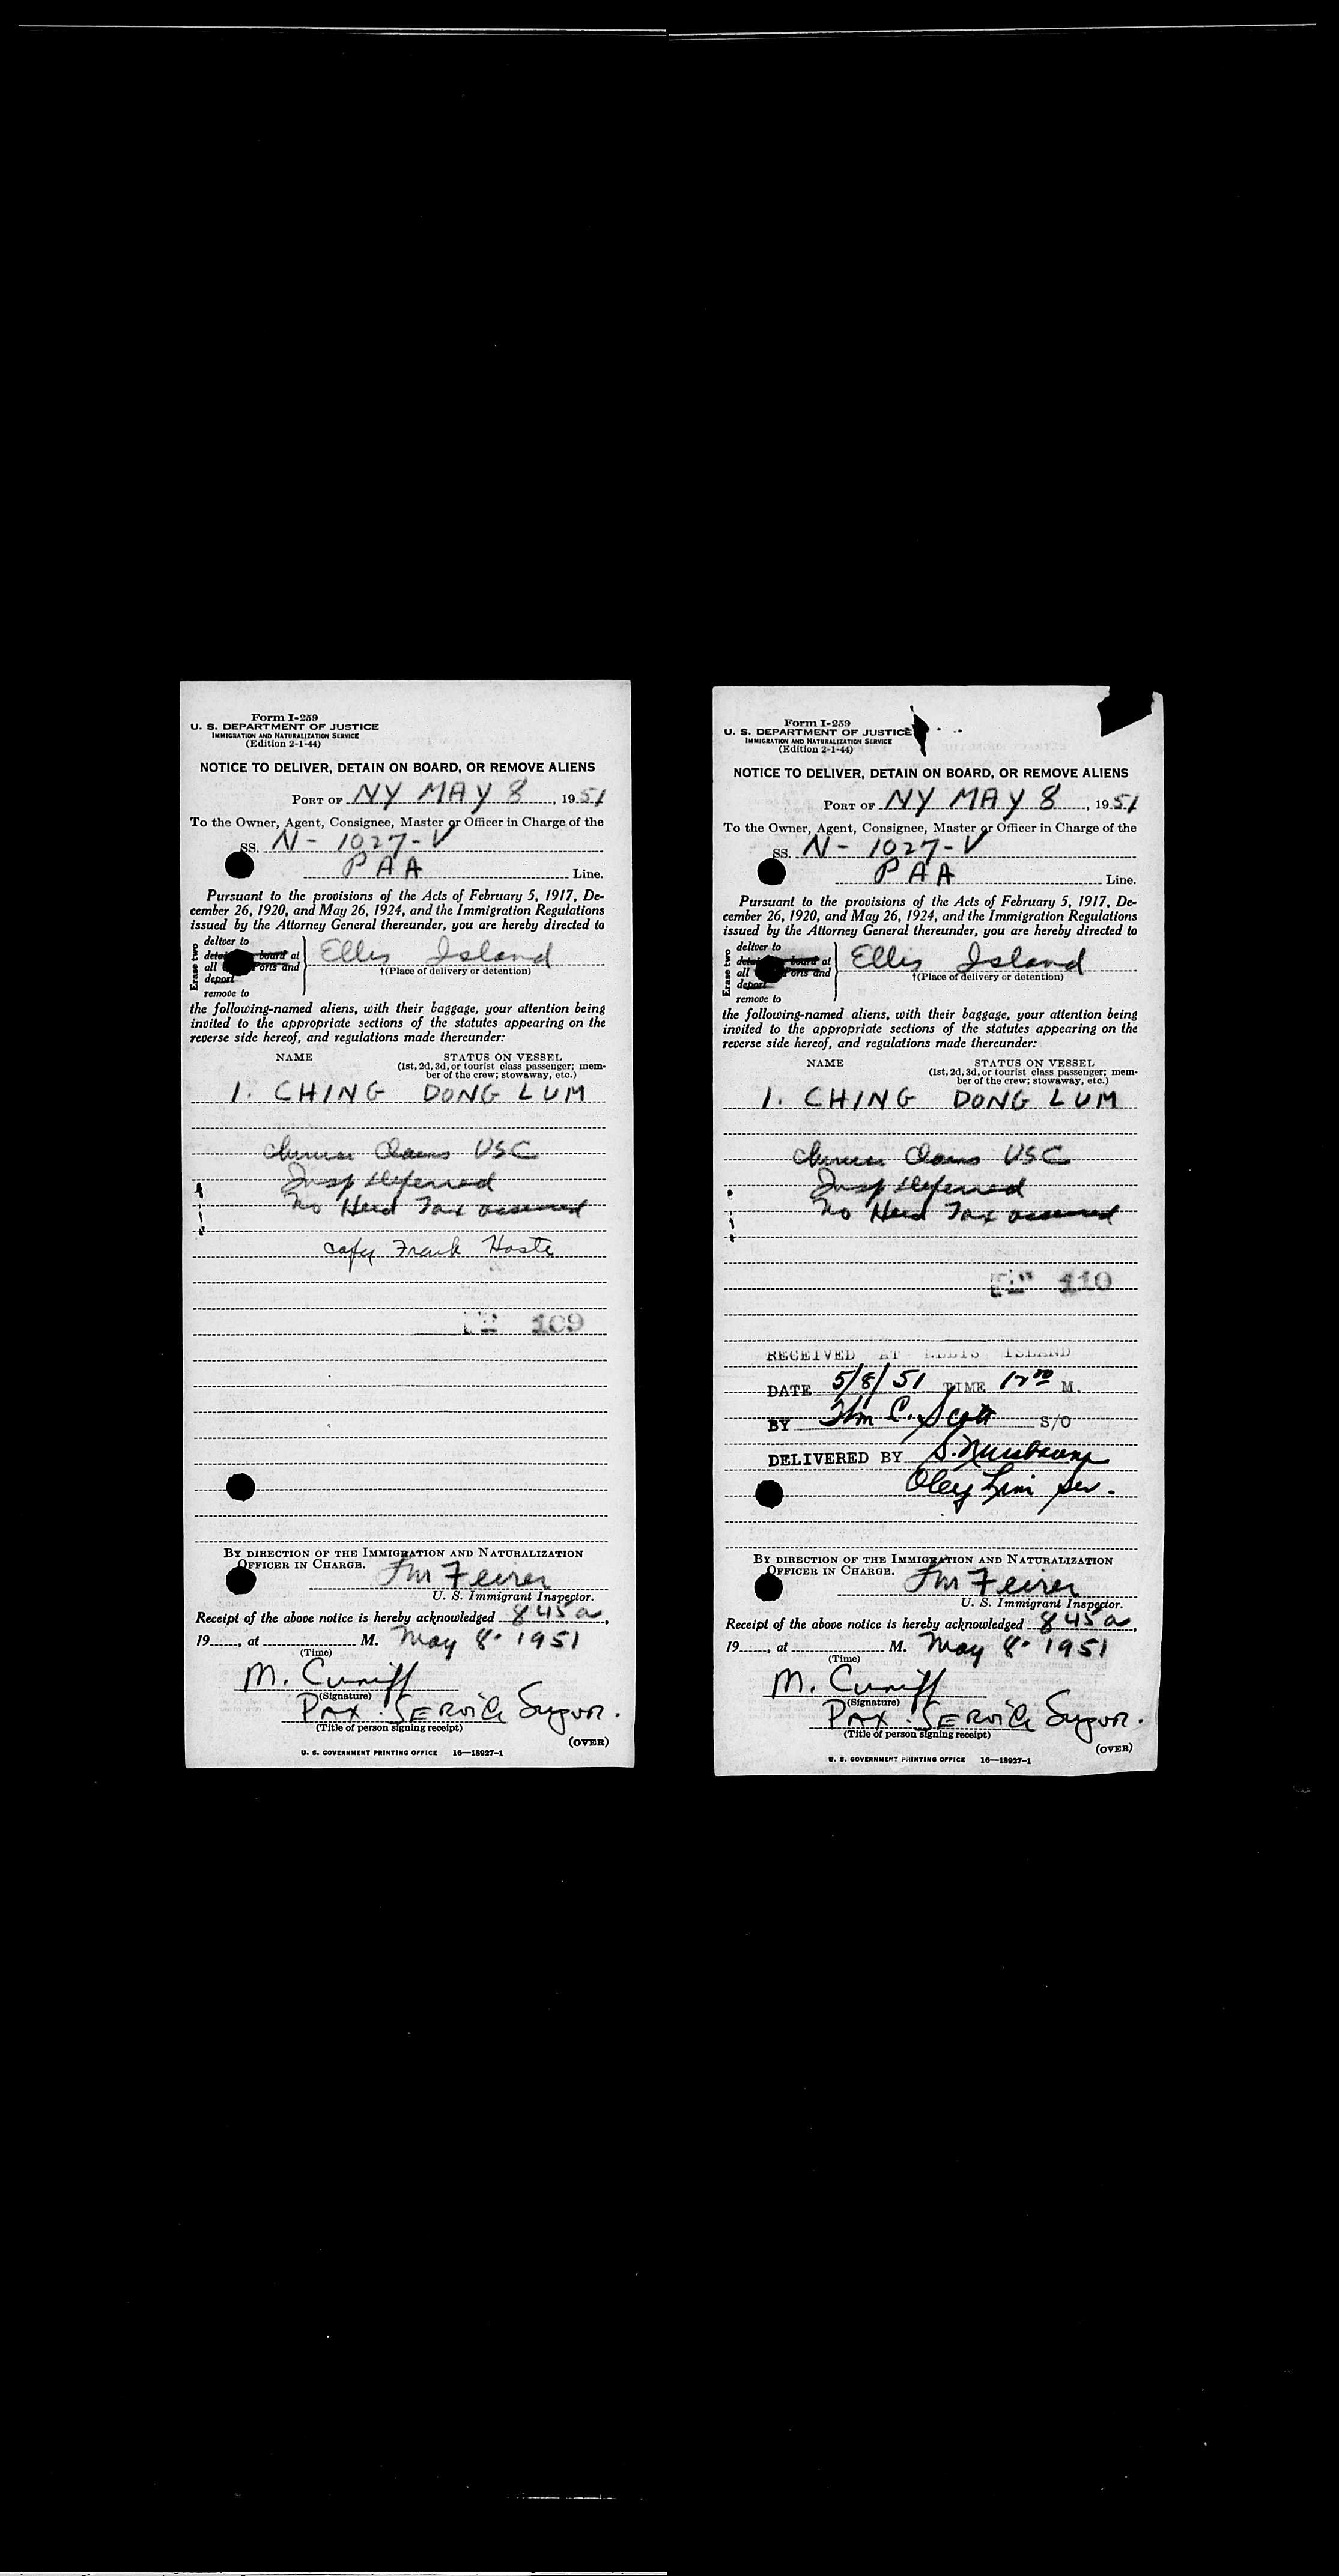 Form I-259
U. S. DEPARTMENT OF JUSTICE
IMMIGRATION AND NATURALIZATION SERVICE
(Edition 2-1-44)
NOTICE TO DELIVER, DETAIN ON BOARD, OR REMOVE ALIENS
PORT OF NY MAY 8, 1951
To the Owner, Agent, Consignee, Master or Officer in Charge of the
SS. N-1027-V
PAA Line.
Pursuant to the provisions of the Acts of February 5, 1917, De-
cember 26, 1920, and May 26, 1924, and the Immigration Regulations
issued by the Attorney General thereunder, you are hereby directed to
Erase two
deliver to
board at
all and
deport
remove to
Ellis Island
†(Place of delivery or detention)
the following-named aliens, with their baggage, your attention being
invited to the appropriate sections of the statutes appearing on the
reverse side hereof, and regulations made thereunder:
NAME STATUS ON VESSEL
(1st, 2d, 3d, or tourist class passenger; mem-
ber of the crew; stowaway, etc.)
1. CHING DONG LUM
Chinese Claims USC
Insp Deferred
No Head Tax assessed
copy Frank Haste
109
BY DIRECTION OF THE IMMIGRATION AND NATURALIZATION
OFFICER IN CHARGE.
U. S. Immigrant Inspector.
Receipt of the above notice is hereby acknowledged 845a,
19___, at ___ M. May 8. 1951
(Time)
M. Cuniff
(Signature)
PAX. SERVICE Supvr.
(Title of person signing receipt)
(OVER)
U. S. GOVERNMENT PRINTING OFFICE 16—18927-1
Form I-259
U. S. DEPARTMENT OF JUSTICE
IMMIGRATION AND NATURALIZATION SERVICE
(Edition 2-1-44)
NOTICE TO DELIVER, DETAIN ON BOARD, OR REMOVE ALIENS
PORT OF NY MAY 8, 1951
To the Owner, Agent, Consignee, Master or Officer in Charge of the
SS. N-1027-V
PAA Line.
Pursuant to the provisions of the Acts of February 5, 1917, De-
cember 26, 1920, and May 26, 1924, and the Immigration Regulations
issued by the Attorney General thereunder, you are hereby directed to
Erase two
deliver to
board at
all and
deport
remove to
Ellis Island
†(Place of delivery or detention)
the following-named aliens, with their baggage, your attention being
invited to the appropriate sections of the statutes appearing on the
reverse side hereof, and regulations made thereunder:
NAME STATUS ON VESSEL
(1st, 2d, 3d, or tourist class passenger; mem-
ber of the crew; stowaway, etc.)
1. CHING DONG LUM
Chinese Claims USC
Insp Deferred
No Head Tax assessed
110
RECEIVED AT ELLIS ISLAND
DATE 5/8/51 TIME 12 00 M.
BY Wm C. Scott S/O
DELIVERED BY S. Nussbaum
BY DIRECTION OF THE IMMIGRATION AND NATURALIZATION
OFFICER IN CHARGE.
U. S. Immigrant Inspector.
Receipt of the above notice is hereby acknowledged 845a,
19___, at ___ M. May 8. 1951
(Time)
M. Cuniff
(Signature)
PAX. SERVICE Supvr.
(Title of person signing receipt)
(OVER)
U. S. GOVERNMENT PRINTING OFFICE 16—18927-1